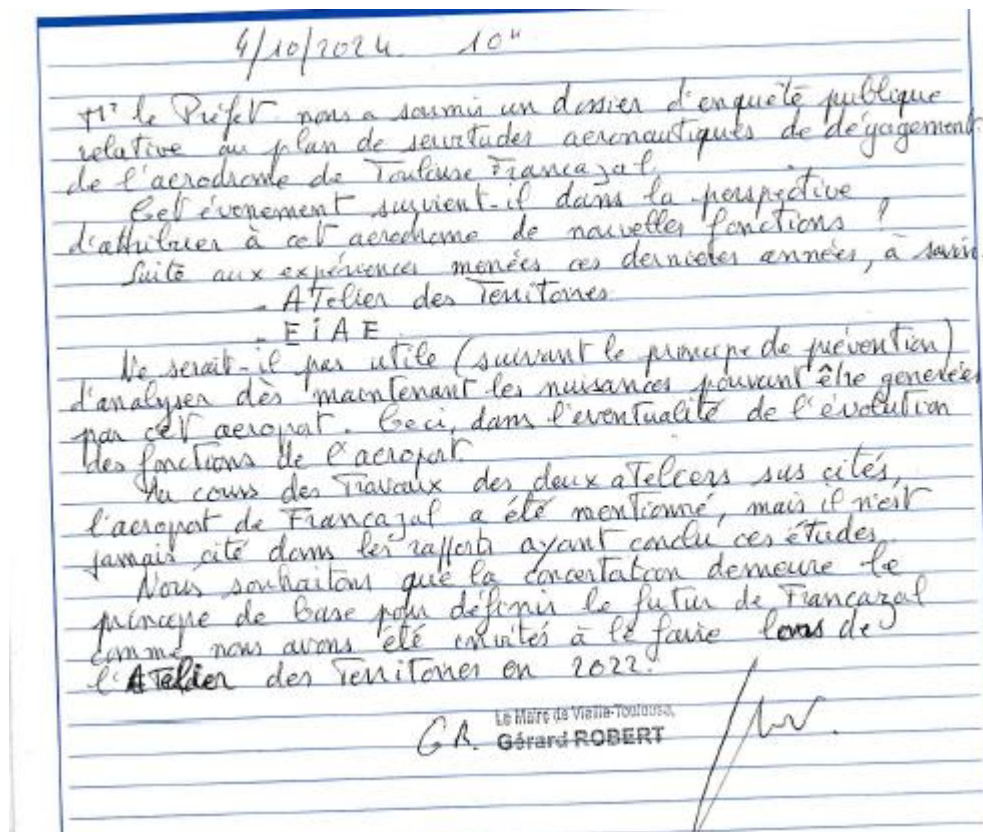 4/10/2024 10H
Mr le Préfet nous a soumis un dossier d'enquête publique
relative au plan de servitudes aeronautiques de dégagement
de l'aerodrome de Toulouse Francazal.
Cet évenement survient-il dans la perspective
d'attribuer à cet aerodrome de nouvelles fonctions ?
Suite aux expériences menées ces dernieres années, à savoir
- ATelier des Territoires
- EiAE
Ne serait-il pas utile (suivant le principe de prévention)
d'analyser dès maintenant les nuisances pouvant être generées
par cet aeroport. Ceci, dans l'eventualité de l'évolution
des fonctions de l'aeroport.
Au cours des Travaux des deux aTeliers sus cités,
l'aeroport de Francazal a été mentionné, mais il n'est
jamais cité dans les rapports ayant conclu ces études.
Nous souhaitons que la concertation demeure le
principe de base pour définir le futur de Francazal
comme nous avons été invités à le faire lors de
l'ATelier des Territoires en 2022.
Le Maire de Vieille-Toulouse,
G.R. Gérard ROBERT